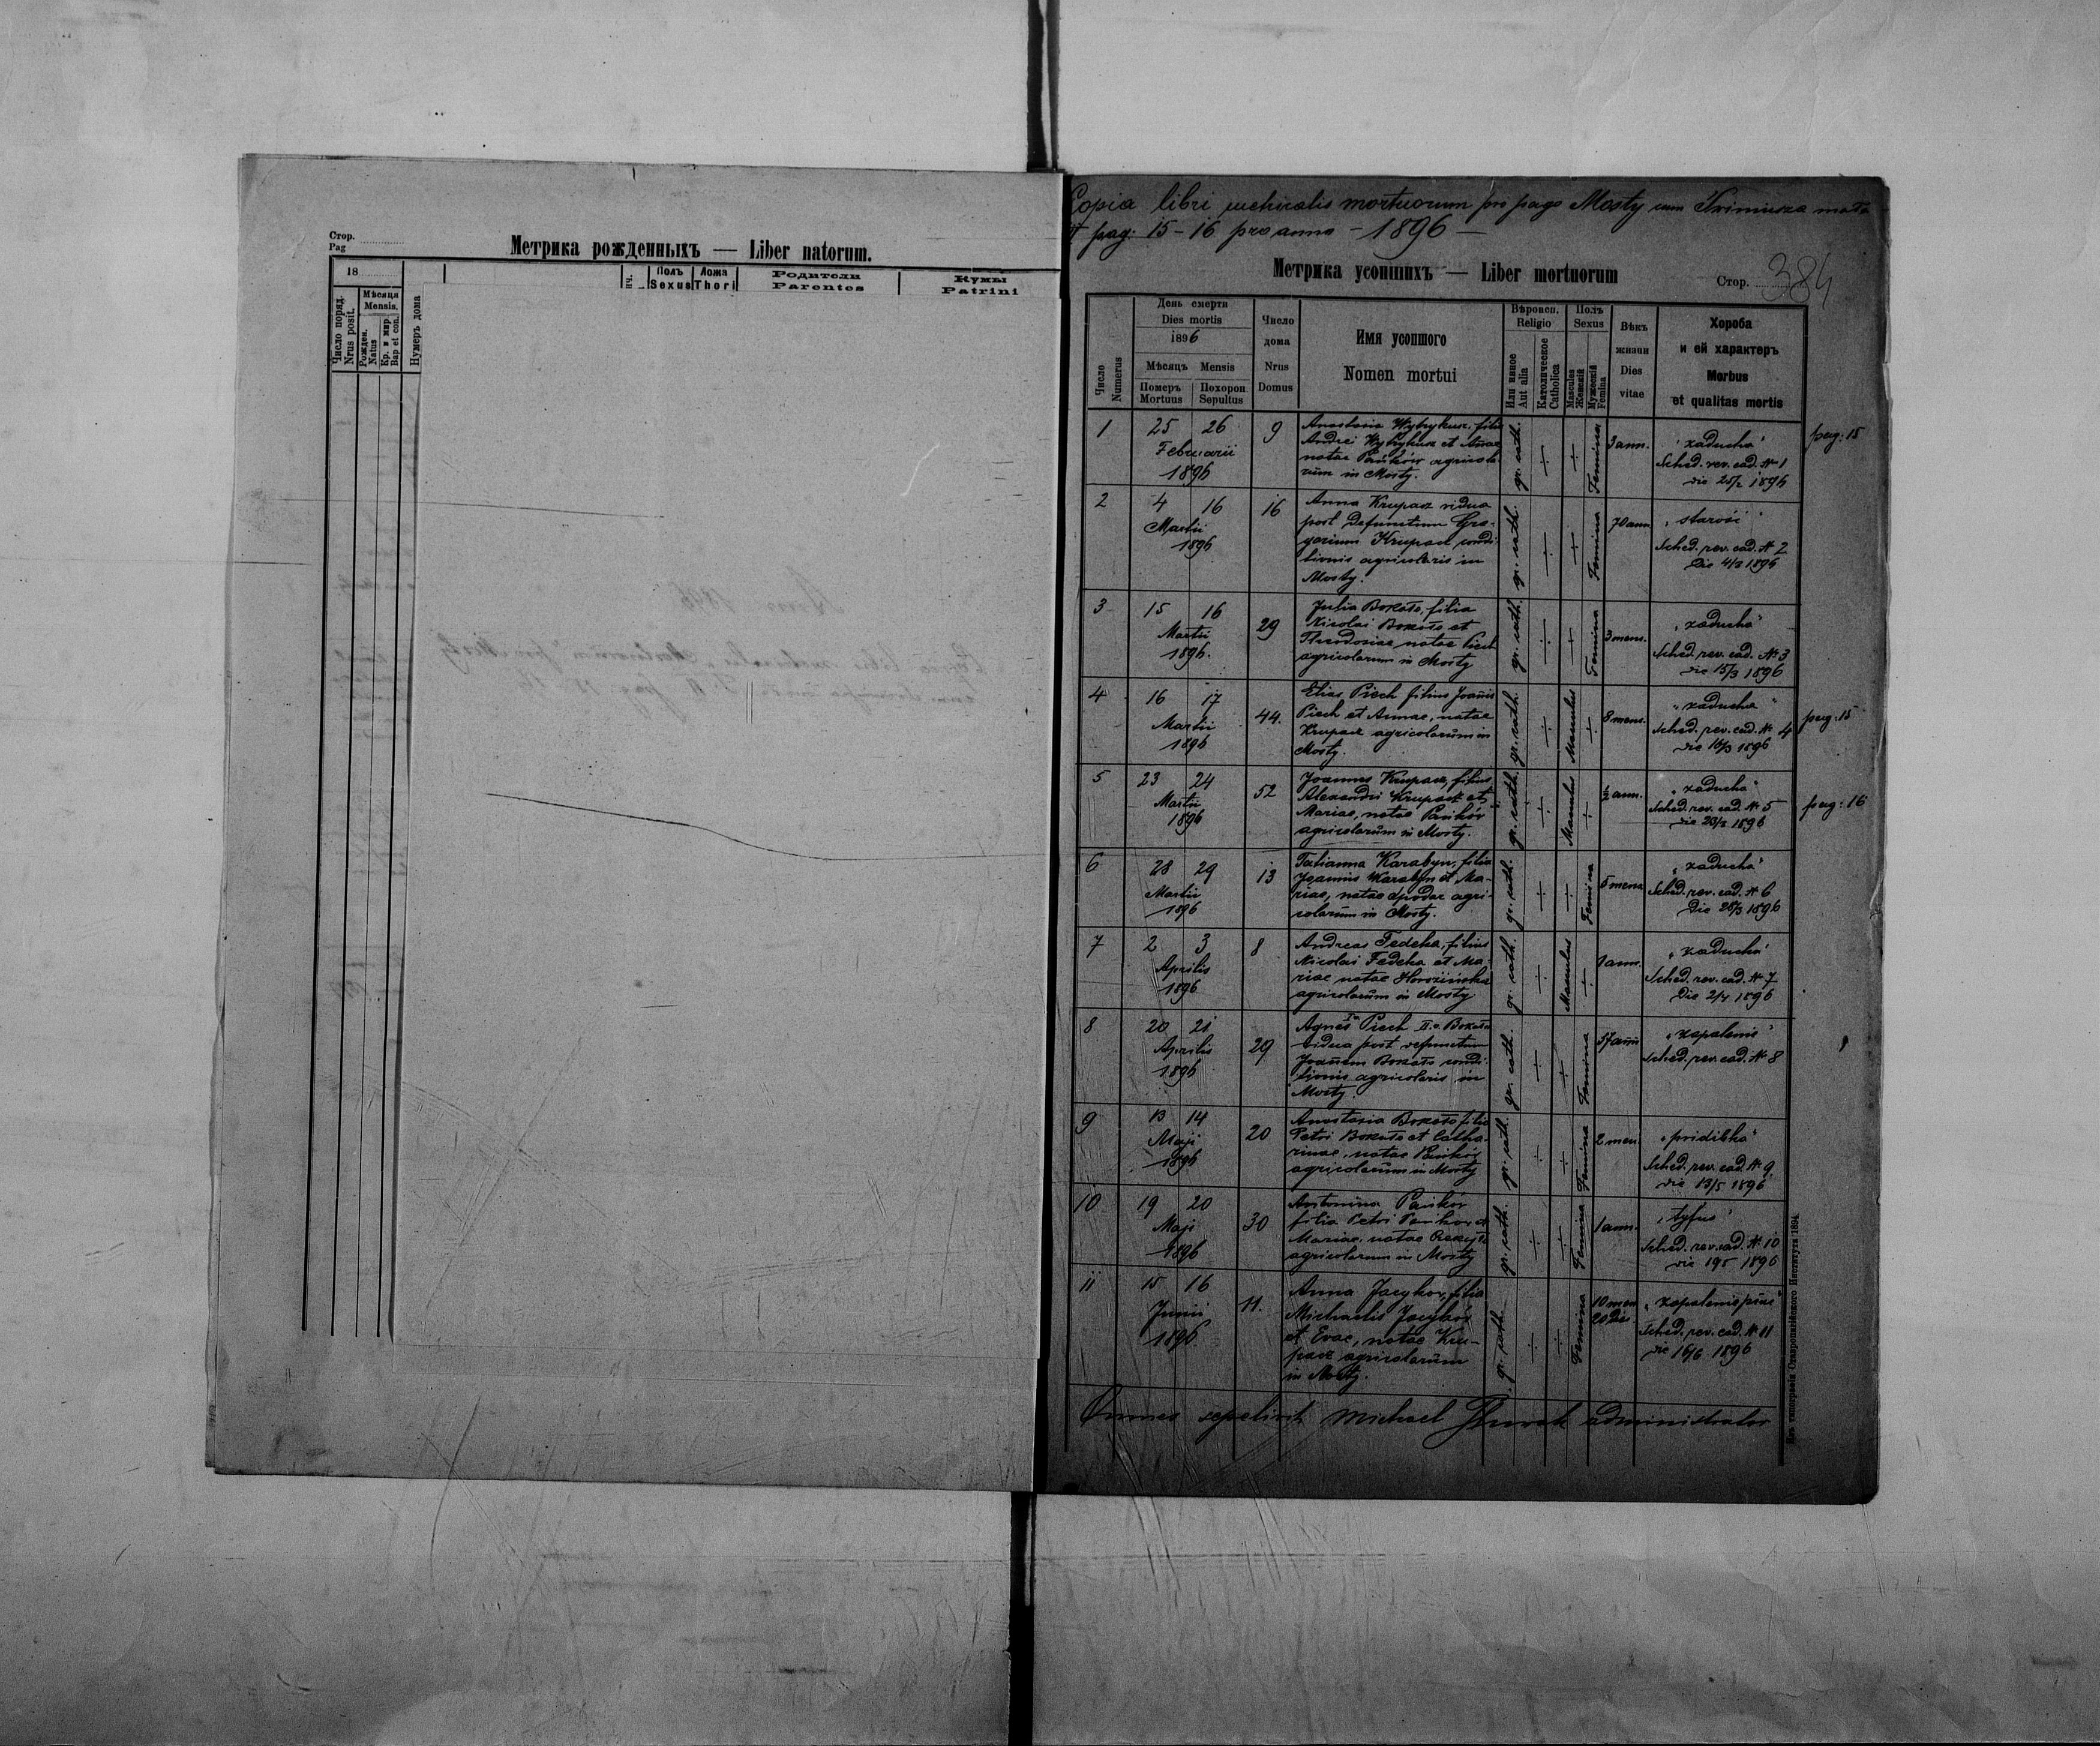 Стор.
Pag
Метрика рожденныхъ — Liber natorum.
18
Число поряд.
Nrus posit.
Мѣсяця
Mensis.
Рожден.
Natus
Кр. и мир.
Bap et con.
Нумеръ дома
Полъ
Sexus
Ложа
Thori
Родители
Parentes
Кумы
Patrini
Copia libri metricalis mortuorum pro pago Mosty cum
pag: 15-16 pro anno - 1896 -
Метрика усопшихъ — Liber mortuorum
Стор. 384
Число
Numerus
День смерти
Dies mortis
1896
Мѣсяцъ Mensis
Померъ
Mortuus
Похорон
Sepultus
Число
дома
Nrus
Domus
Имя усопшого
Nomen mortui
Вѣроисп.
Religio
Или инное
Aut alia
Католическое
Catholica
Полъ
Sexus
Masculus
Женскій
Мужескій
Femina
Вѣкъ
жизни
Dies
vitae
Хороба
и ей характеръ
Morbus
et qualitas mortis
1 25 26 Februarii 1896 9
Anastasia Wytrykusz, filia
Andrei Wytrykusz et Annae
natae Pańków agricola-
rum in Mosty.
gr. cath. Femina 3 ann.
"zaducha"
Sched. rev. cad. № 1
die 25/2 1896
pag: 15
2 4 16 Martii 1896 16
Anna Krupacz vidua
post defunctum Gre-
gorium Krupacz condi-
tionis agricolaris in
Mosty.
gr. cath. Femina 70 ann.
"starość"
Sched. rev. cad. № 2
Die 4/3 1896
3 15 16 Martii 1896. 29
Julia Bokało, filia
Nicolai Bokało et
Theodosiae natae Piech
agricolarum in Mosty
gr. cath. Femina 3 mens.
"zaducha"
Sched. rev. cad. № 3
die 15/3 1896
4 16 17 Martii 1896 44.
Elias Piech filius Joannis
Piech et Annae, natae
Krupacz agricolarum in
Mosty.
gr. cath. Masculus 8 mens.
"zaducha"
Sched. rev. cad. № 4
die 16/3 1896
pag: 15
5 23 24 Martii 1896 52
Joannes Krupacz, filius
Alexandri Krupacz et
Mariae, natae Pańków
agricolarum in Mosty.
gr. cath. Masculus ann.
"zaducha"
Sched. rev. cad. № 5
die 23/3 1896
pag: 16
6 28 29 Martii 1896 13
Tatianna Karabyn, filia
Joannis Karabyn et Ma-
riae, natae agri-
colarum in Mosty.
gr. cath. Femina 5 mens
"zaducha"
Sched. rev. cad. № 6
Die 28/3 1896
7 2 3 Aprilis 1896 8
Andreas Fedeka, filius
Nicolai Fedeka et Ma-
riae natae
agricolarum in Mosty
gr. cath. Masculus 1 ann.
"zaducha"
Sched. rev. cad. № 7
Die 2/4 1896
8 20 21 Aprilis 1896 29
Agnes Piech II.o Bokało
vidua post defunctum
Joannem Bokało condi-
tionis agricolaris in
Mosty.
gr. cath. Femina 57 ann
"zapalenie"
Sched. rev. cad. № 8
9 13 14 Maji 1896 20
Anastasia Bokało filia
Petri Bokało et Catha-
rinae, natae Pańków
agricolarum in Mosty
gr. cath. Femina 2 men.
"pridibka"
Sched. rev. cad. № 9
die 13/5 1896
10 19 20 Maji 1896 30
Antonina Pańków
filia Petri Pańków et
Mariae, natae
agricolarum in Mosty
gr. cath. Femina 1 ann.
"tyfus"
Sched. rev. cad. № 10
die 19/5 1896
11 15 16 Junii 1896 11.
Anna Jacykov, filia
Michaelis Jacyków
et Evae, natae Kru-
pacz agricolarum
in Mosty.
gr. cath. Femina 10 men 20 die
"zapalenie płuc"
Sched. rev. cad. № 11
die 16/6 1896
Omnes sepelivit Michael administrator
Изъ типографіи Ставропигійского Института 1894.